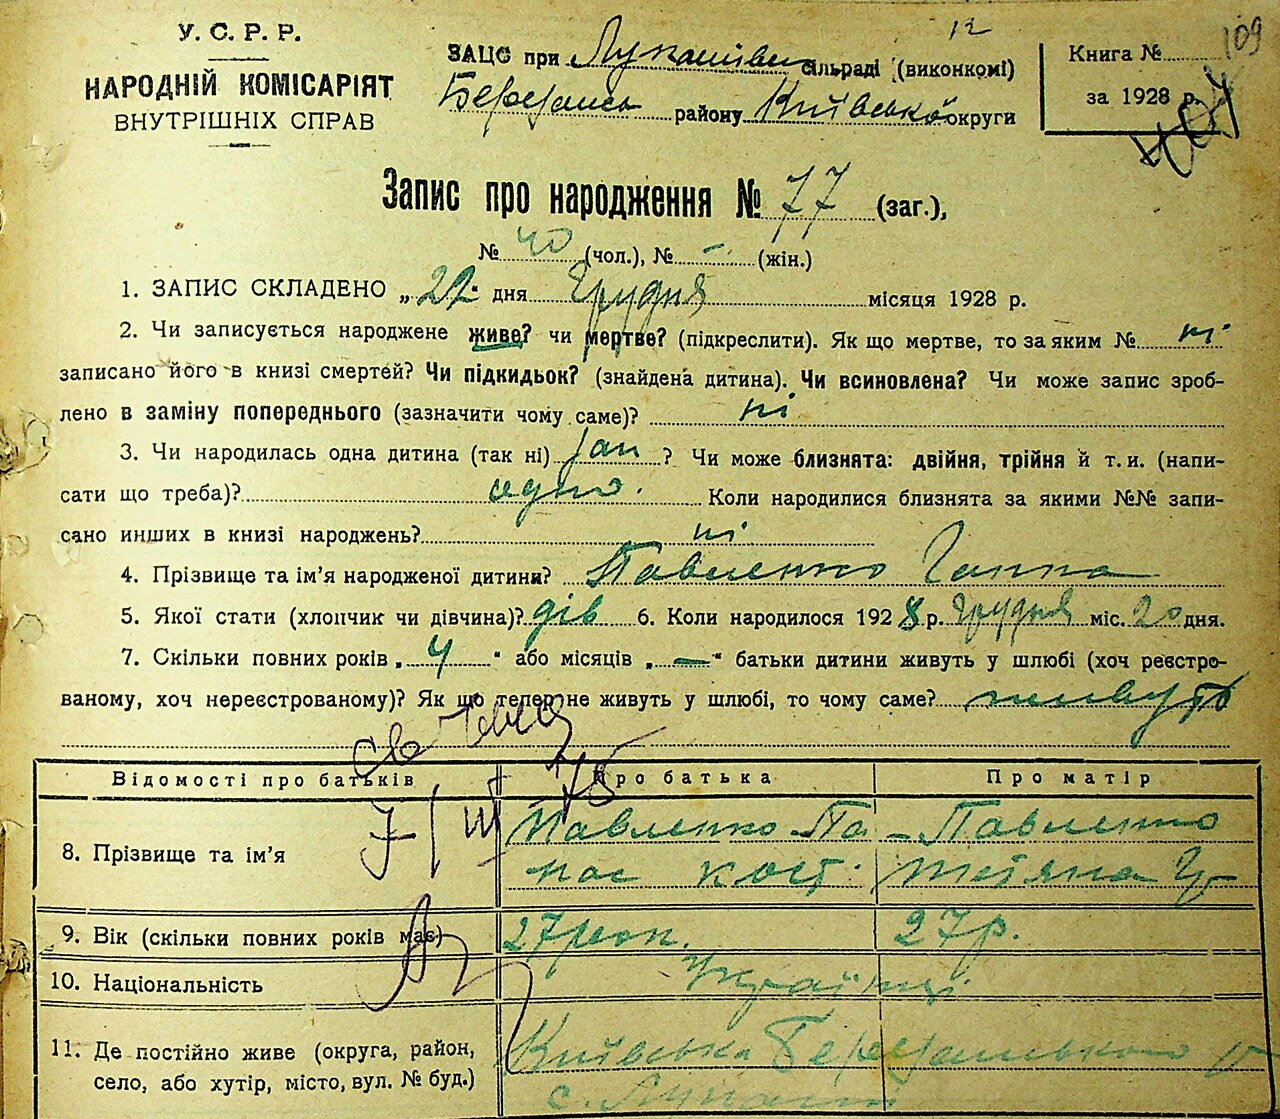 12
109
У. С. Р. Р.
НАРОДНІЙ КОМІСАРІЯТ
ВНУТРІШНІХ СПРАВ
ЗАЦС при Лукашівськ сільраді (виконкомі)
району Київської округи
Книга №
за 1928 р.
Запис про народження № 77 (заг.),
№ 40 (чол.), № – (жін.)
1. ЗАПИС СКЛАДЕНО „22“ дня Грудня місяця 1928 р.
2. Чи записується народжене живе? чи мертве? (підкреслити). Як що мертве, то за яким № ні
записано його в книзі смертей? Чи підкидьок? (знайдена дитина). Чи всиновлена? Чи може запис зроб-
лено в заміну попереднього (зазначити чому саме)? ні
3. Чи народилась одна дитина (так ні) ? Чи може близнята: двійня, трійня й т. и. (напи-
сати що треба)? одно. Коли народилися близнята за якими №№ запи-
сано инших в книзі народжень? ні
4. Прізвище та ім’я народженої дитини? Павленко Ганна
5. Якої стати (хлопчик чи дівчина)? дів 6. Коли народилося 1928 р. Грудня міс. 20 дня.
7. Скільки повних років „4“ або місяців „—“ батьки дитини живуть у шлюбі (хоч реєстро-
ваному, хоч нереєстрованому)? Як що тепер не живуть у шлюбі, то чому саме? живуть
Відомості про батьків Про батька Про матір
8. Прізвище та ім’я Павленко Па- Павленко
нас Кост. Тетяна
9. Вік (скільки повних років має) 27 рок. 27 р.
10. Національність Українці
11. Де постійно живе (округа, район, Київська
село, або хутір, місто, вул. № буд.) с.